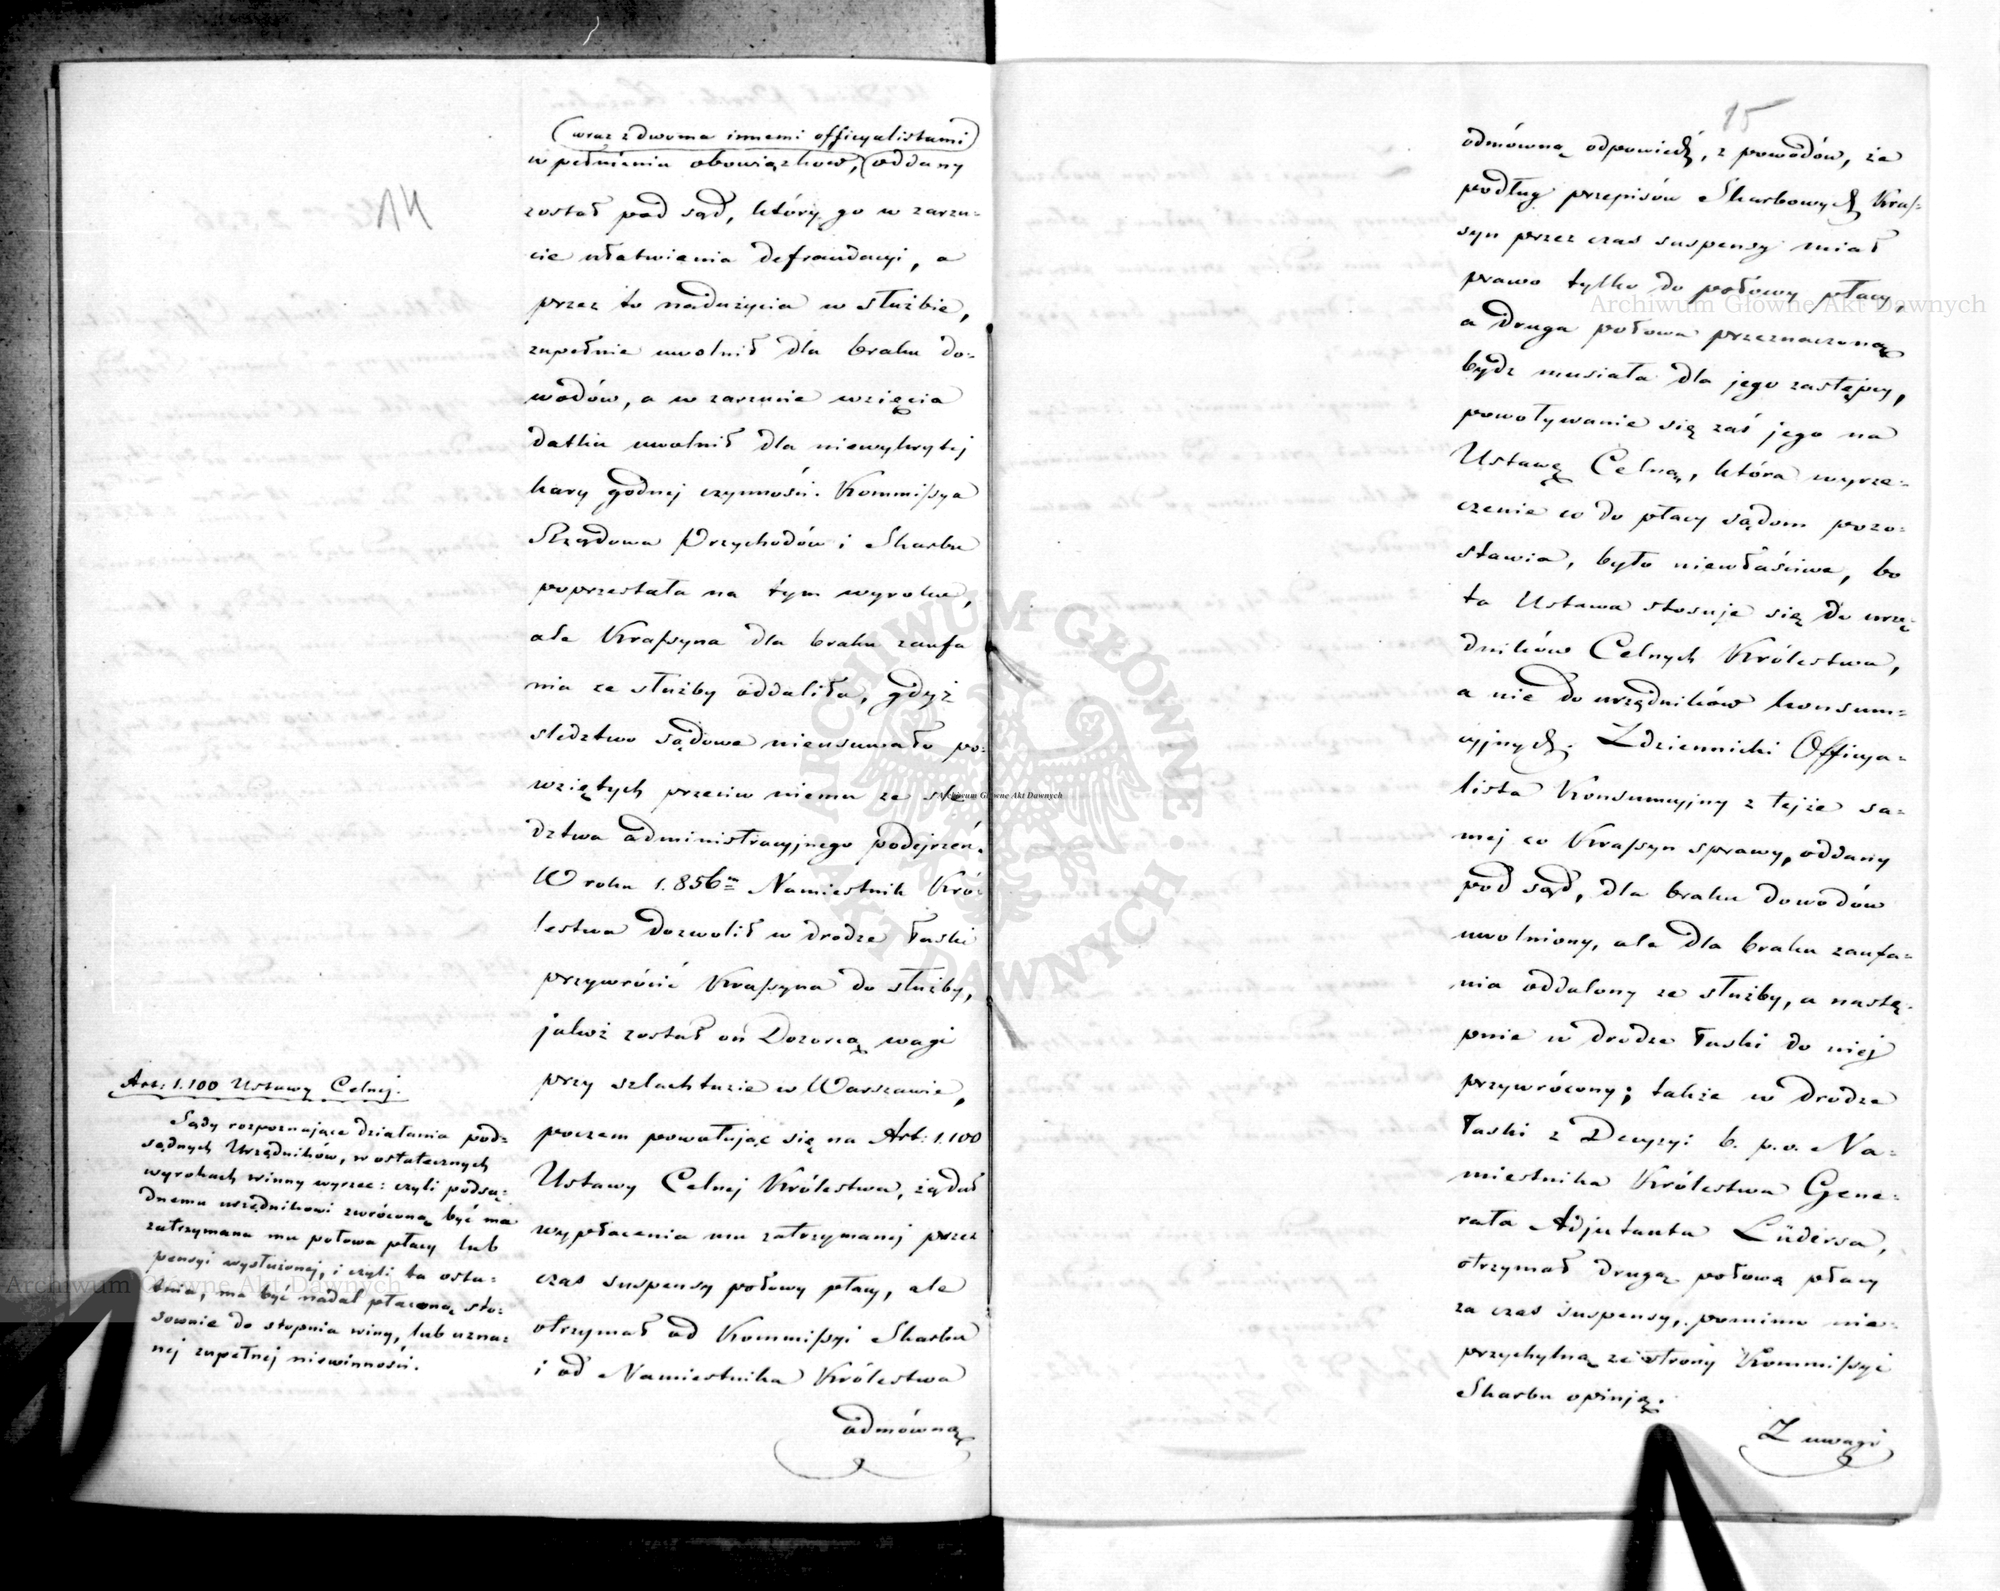 14
(wraz z dwoma innemi officyalistami)
w pełnieniu obowiązków, oddany
został pod sąd, który go w zarzu-
cie ułatwienia defraudacyi, a
przez to nadużycia w służbie,
zupełnie uwolnił dla braku do-
wodów, a w zarzucie wzięcia
datku uwolnił dla niewykrytej
kary godnej czynności. Kommissya
Rządowa Przychodów i Skarbu
poprzestała na tym wyroku,
ale Krassyna dla braku zaufa
nia ze służby oddaliła, gdyż
sledztwo sądowe nieusuwało po-
wziętych przeciw niemu ze sle
dztwa administracyjnego podejrzeń.
W roku 1.856m Namiestnik Kró-
lestwa dozwolił w drodze łaski
przywrócić Krassyna do służby,
jakoż został on Dozorcą wagi
przy szlachtuzie w Warszawie,
poczem powołując się na Art: 1.100
Ustawy Celnej Królestwa, żądał
wypłacenia mu zatrzymanej przez
czas suspensy połowy płacy, ale
otrzymał od Kommissyi Skarbu
i od Namiestnika Królestwa
odmówną
Art: 1.100 Ustawy Celnej.
Sądy rozpoznające działania pod-
sądnych Urzędników, w ostatecznych
wyrokach winny wyrzec: czyli podsą-
dnemu urzędnikowi zwróconą być ma
zatrzymana mu połowa płacy lub
pensyi wysłużonej, i czyli ta osta-
tnia, ma być nadal płaconą sto-
sownie do stopnia winy, lub uzna-
nej zupełnej niewinności.
15
odmówną odpowiedź, z powodów, że
podług przepisów Skarbowych Kras-
syn przez czas suspensy miał
prawo tylko do połowy płacy,
a druga połowa przeznaczoną
bydź musiała dla jego zastępcy,
powoływanie się zaś jego na
Ustawę Celną, która wyrze-
czenie co do płacy sądom pozo-
stawia, było niewłaściwe, bo
ta Ustawa stosuje się do urzę-
dników Celnych Królestwa,
a nie do urzędników konsum-
cyjnych. Zdziennicki Officya-
lista Konsumcyjny z tejże sa-
mej co Krassyn sprawy, oddany
pod sąd, dla braku dowodów
uwolniony, ale dla braku zaufa-
nia oddalony ze służby, a nastę-
pnie w drodze łaski do niej
przywrócony; także w drodze
łaski z Decyzyi b. p.o. Na-
miestnika Królestwa Gene-
rała Adjutanta Lüdersa,
otrzymał drugą połowę płacy
za czas suspensy, pomimo nie-
przychylną ze strony Kommissyi
Skarbu opinją.
Z uwagi
Archiwum Główne Akt Dawnych
Archiwum Główne Akt Dawnych
Archiwum Główne Akt Dawnych
ARCHIWUM GŁÓWNE AKT DAWNYCH